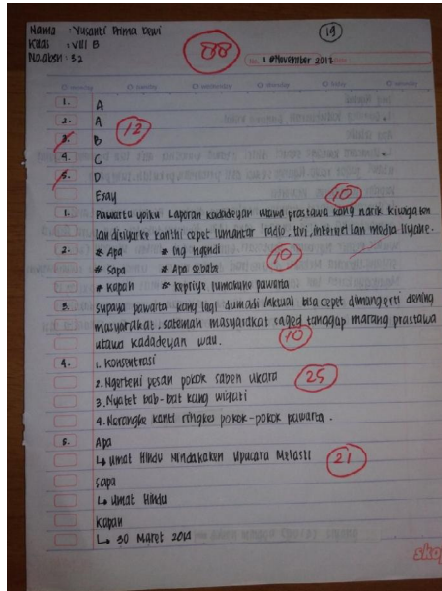 Nama : Yusanti Prima Dewi
Kelas : VIII B
No.absen : 32
19
88
1 November 2017
1. A
2. A
3. B
12
4. C
5. D
Esay
10
1. Pawarta yoiku Laporan kadadeyan utawa prastawa kang narik kawigaten
lan disiyarke kanthi cepet lumantar radio, tivi, internet lan media liyane.
2. * Apa * Ing ngendi
* Sapa * Apa sebabe
* Kapan * Kepriye lumakune pawarta
10
3. Supaya pawarta kang lagi dumadi /aktual bisa cepet dimangerti dening
masyarakat. Satemah masyarakat caged tanggap marang prastawa
utawa kadadeyan wau.
10
4. 1. Konsentrasi
2. Ngerteni pesan pokok saben ukara
25
3. Nyatet bab-bab kang wigati
4. Narangke kanti ringkes pokok-pokok pawarta.
5. Apa
↳ Umat Hindu Nindakaken Upacara Melasti
21
Sapa
↳ Umat Hindu
Kapan
↳ 30 Maret 2014